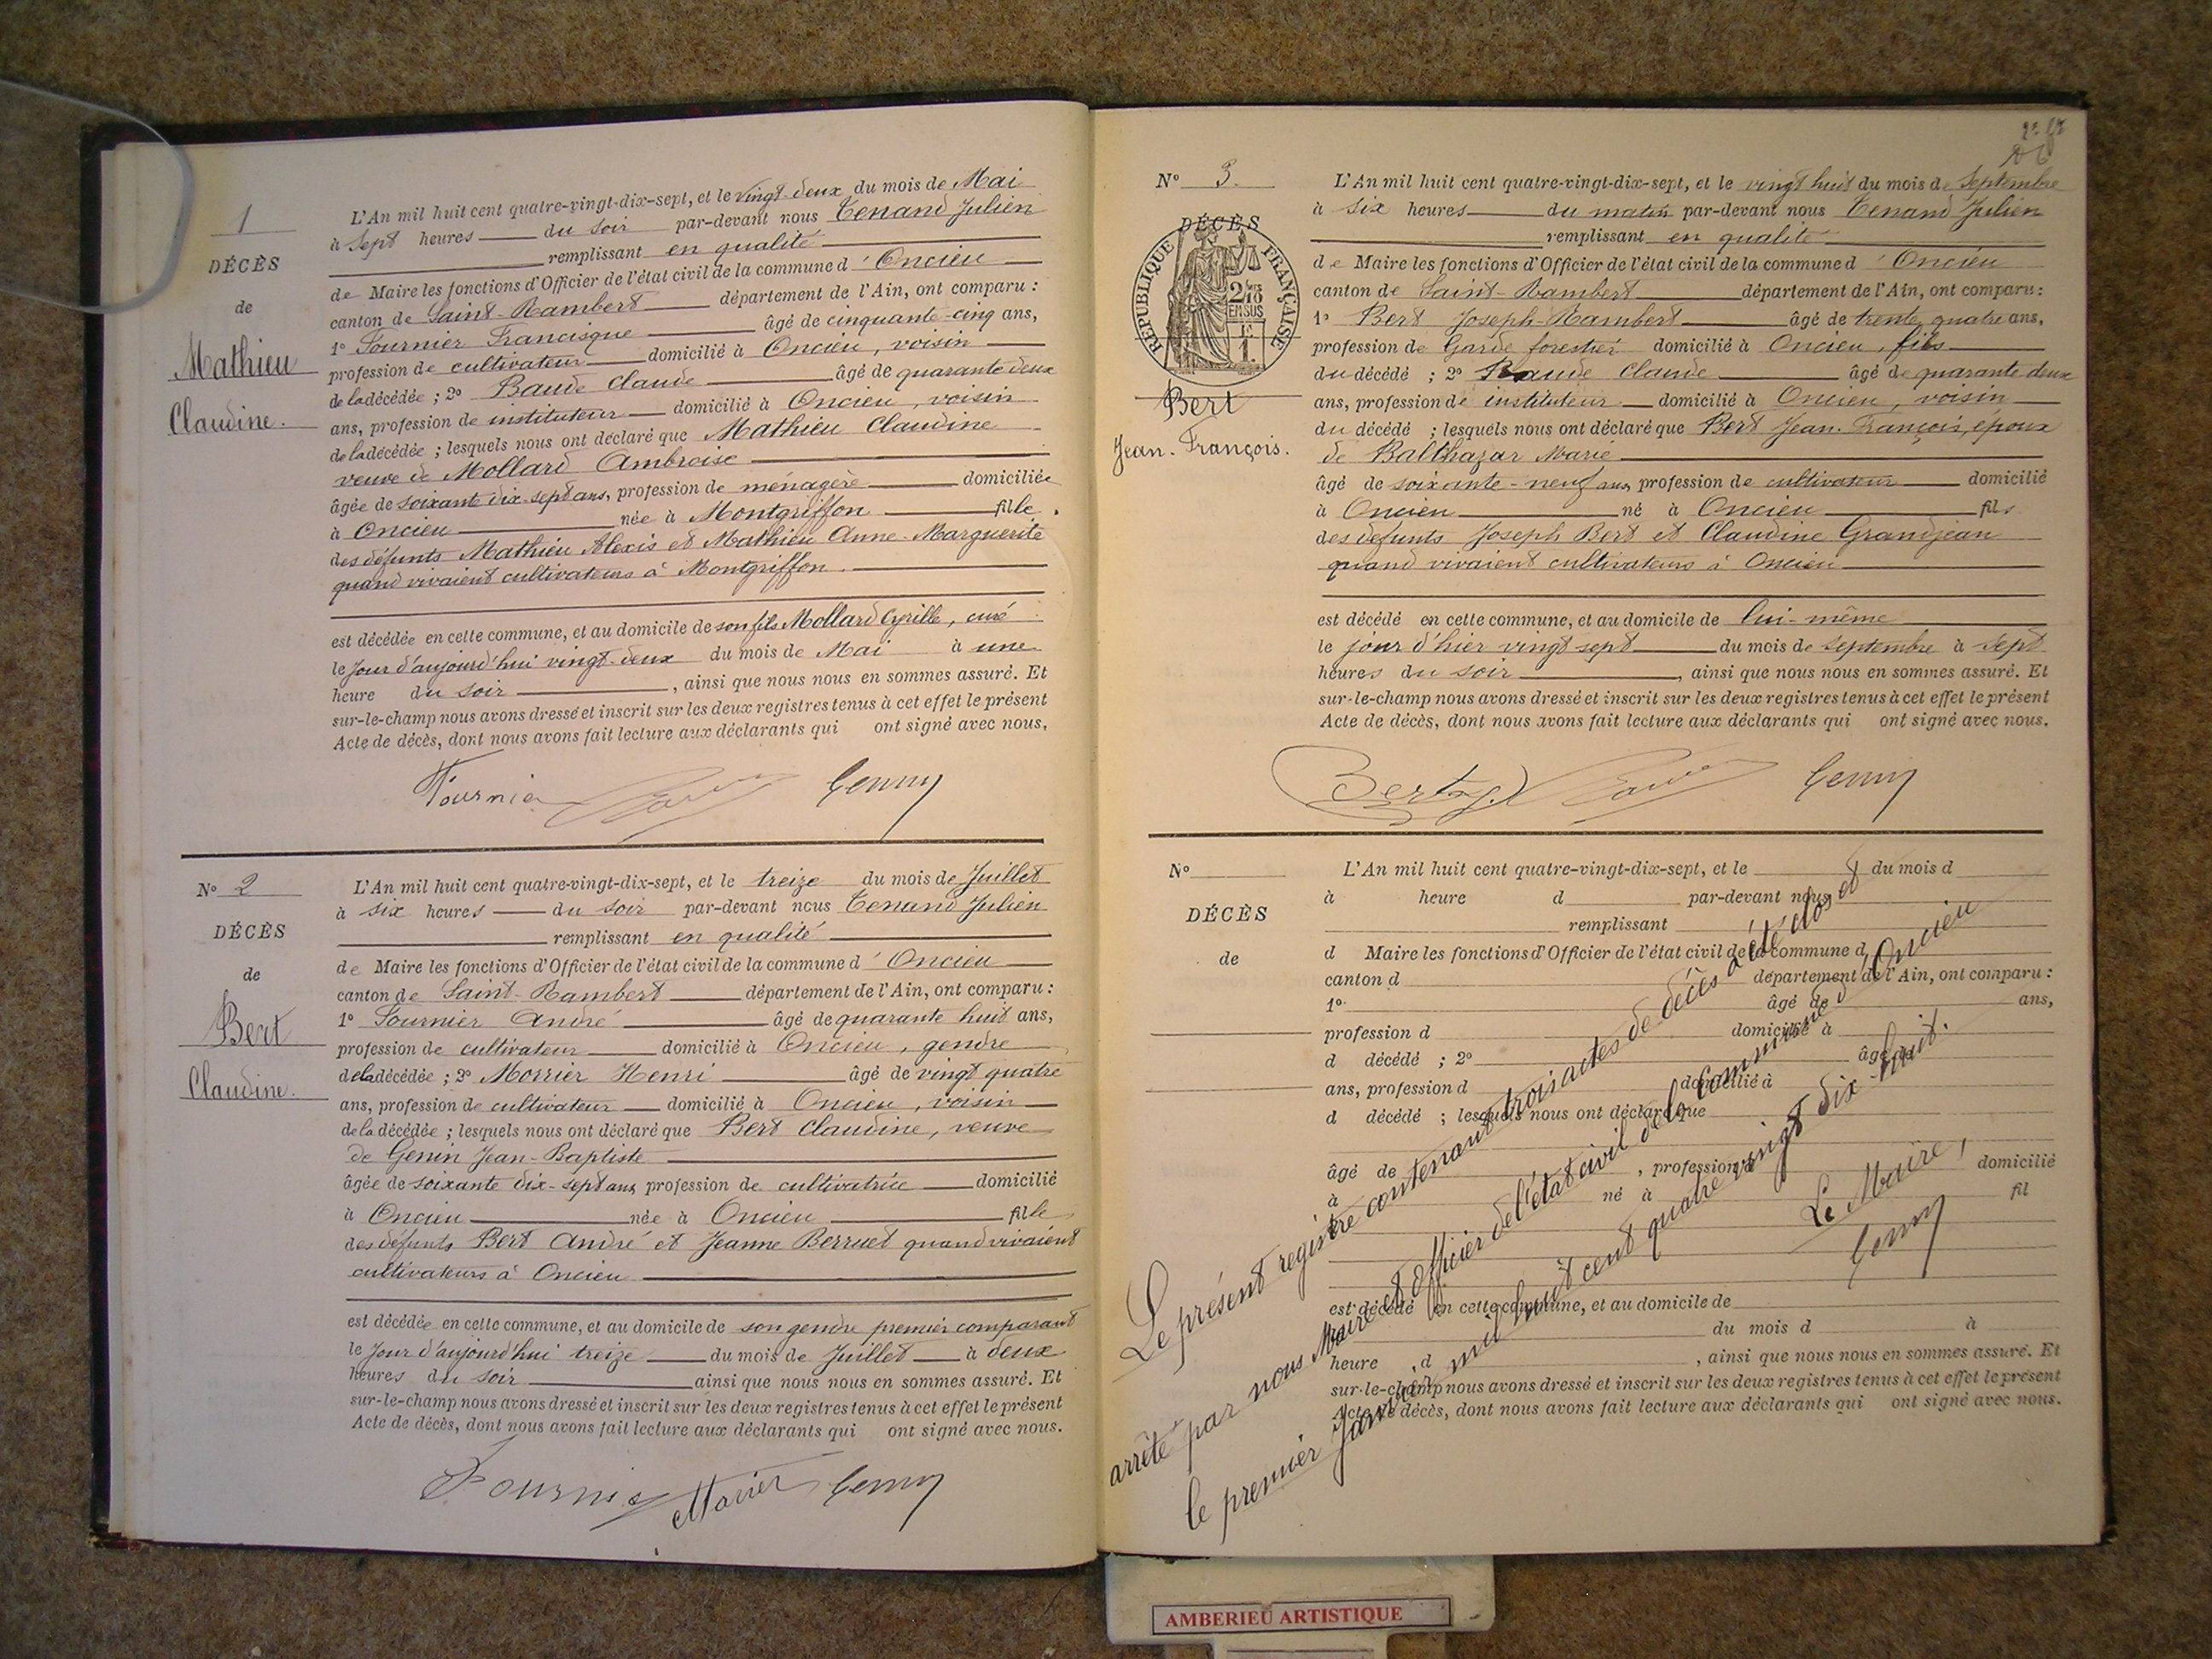 1
DÉCÈS
de
Mathieu
Claudine.
L'An mil huit cent quatre-vingt-dix-sept, et le vingt-deux du mois de Mai
à sept heures du soir par-devant nous Tenand Julien
remplissant en qualité
de Maire les fonctions d'Officier de l'état civil de la commune d'Oncieu
canton de Saint-Rambert département de l'Ain, ont comparu :
1º Fournier Francisque âgé de cinquante-cinq ans,
profession de cultivateur domicilié à Oncieu, voisin
de la décédée ; 2º Baude Claude âgé de quarante deux
ans, profession de instituteur domicilié à Oncieu, voisin
de la décédée ; lesquels nous ont déclaré que Mathieu Claudine
veuve de Mollard Ambroise
âgée de soixante dix-sept ans, profession de ménagère domiciliée
à Oncieu née à Montgriffon fille
des défunts Mathieu Alexis et Mathieu Anne-Marguerite
quand vivaient cultivateurs à Montgriffon.
est décédée en cette commune, et au domicile de son fils Mollard Cyrille, curé
le jour d'aujourd'hui vingt-deux du mois de Mai à une
heure du soir, ainsi que nous nous en sommes assuré. Et
sur-le-champ nous avons dressé et inscrit sur les deux registres tenus à cet effet le présent
Acte de décès, dont nous avons fait lecture aux déclarants qui ont signé avec nous.
Fournier
Nº 2
DÉCÈS
de
Bert
Claudine.
L'An mil huit cent quatre-vingt-dix-sept, et le treize du mois de Juillet
à six heures du soir par-devant nous Tenand Julien
remplissant en qualité
de Maire les fonctions d'Officier de l'état civil de la commune d'Oncieu
canton de Saint-Rambert département de l'Ain, ont comparu :
1º Fournier André âgé de quarante huit ans,
profession de cultivateur domicilié à Oncieu, gendre
de la décédée ; 2º Morrier Henri âgé de vingt quatre
ans, profession de cultivateur domicilié à Oncieu, voisin
de la décédée ; lesquels nous ont déclaré que Bert Claudine, veuve
de Genin Jean-Baptiste
âgée de soixante dix-sept ans, profession de cultivatrice domicilié
à Oncieu née à Oncieu fille
des défunts Bert André et Jeanne Berruet quand vivaient
cultivateurs à Oncieu
est décédée en cette commune, et au domicile de son gendre premier comparant
le jour d'aujourd'hui treize du mois de Juillet à deux
heures du soir ainsi que nous nous en sommes assuré. Et
sur-le-champ nous avons dressé et inscrit sur les deux registres tenus à cet effet le présent
Acte de décès, dont nous avons fait lecture aux déclarants qui ont signé avec nous.
Nº 3.
DÉCÈS
RÉPUBLIQUE FRANÇAISE
2/10 EN SUS
1.
Bert
Jean-François.
L'An mil huit cent quatre-vingt-dix-sept, et le vingt huit du mois de Septembre
à six heures du matin par-devant nous Tenand Julien
remplissant en qualité
de Maire les fonctions d'Officier de l'état civil de la commune d'Oncieu
canton de Saint-Rambert département de l'Ain, ont comparu :
1º Bert Joseph-Rambert âgé de trente quatre ans,
profession de Garde forestier domicilié à Oncieu, fils
du décédé ; 2º Baude Claude âgé de quarante deux
ans, profession de instituteur domicilié à Oncieu, voisin
du décédé ; lesquels nous ont déclaré que Bert Jean-François, époux
de Balthazar Marie
âgé de soixante-neuf ans, profession de cultivateur domicilié
à Oncieu né à Oncieu fils
des défunts Joseph Bert et Claudine Grandjean
quand vivaient cultivateurs à Oncieu
est décédé en cette commune, et au domicile de lui-même
le jour d'hier vingt sept du mois de septembre à sept
heures du soir, ainsi que nous nous en sommes assuré. Et
sur-le-champ nous avons dressé et inscrit sur les deux registres tenus à cet effet le présent
Acte de décès, dont nous avons fait lecture aux déclarants qui ont signé avec nous.
Nº
DÉCÈS
de
L'An mil huit cent quatre-vingt-dix-sept, et le du mois d
à heure d par-devant nous
remplissant
d Maire les fonctions d'Officier de l'état civil de la commune d
canton d département de l'Ain, ont comparu :
1º âgé de ans,
profession d domicilié à
d décédé ; 2º âgé de
ans, profession d domicilié à
d décédé ; lesquels nous ont déclaré que
âgé de , profession d domicilié
à né à fil
est décédé en cette commune, et au domicile de
du mois d à
heure d , ainsi que nous nous en sommes assuré. Et
sur-le-champ nous avons dressé et inscrit sur les deux registres tenus à cet effet le présent
Acte de décès, dont nous avons fait lecture aux déclarants qui ont signé avec nous.
Le présent registre contenant trois actes de décès a été clos et
arrêté par nous Maire et officier de l'état civil de la commune d'Oncieu
le premier janvier mil huit cent quatre vingt dix-huit.
Le Maire,
AMBERIEU ARTISTIQUE